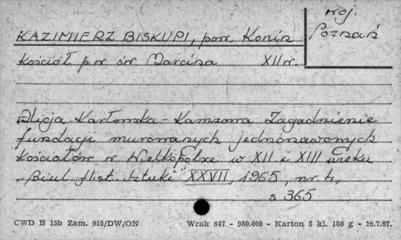 woj.
Poznań
KAZIMIERZ BISKUPI, pow. Konin
Kościół p.w. św. Marcina XII w.
Alicja Karłowska-Kamzowa Zagadnienie
fundacji murowanych jednonawowych
kościołów w Wielkopolsce w XII i XIII wieku
„Biul. Hist. Sztuki" XXVII, 1965, nr 4,
s 365
CWD B 15b Zam. 915/DW/ON Wrak 647 - 980.000 - Karton 5 kl. 180 g - 19.7.67.